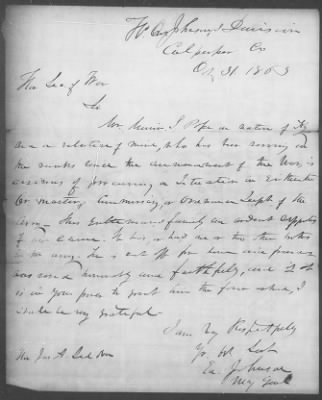 Hd Qrs Johnson's Division
Culpeper Co
Oct 31. 1863
Hon Sec of War
Sir
Mr J. Pope a native of
and a relative of mine, who has been serving in
the ranks since the commencement of the War, is
desirous of procuring a situation in either the
Qr masters, Commissary, or Ordnance Depts of the
Army. This Gentleman's family are ardent supporters
of our cause. He has, or had one or two other brothers
in the army. he is cut off from home since
was raised and faithfully, and if it
is in your power to grant him the favor asked, I
should be very grateful.
I am very Respectfully
Yr. Obt Svt
Ed. Johnson
Maj Genl
Hon Jas A Seddon